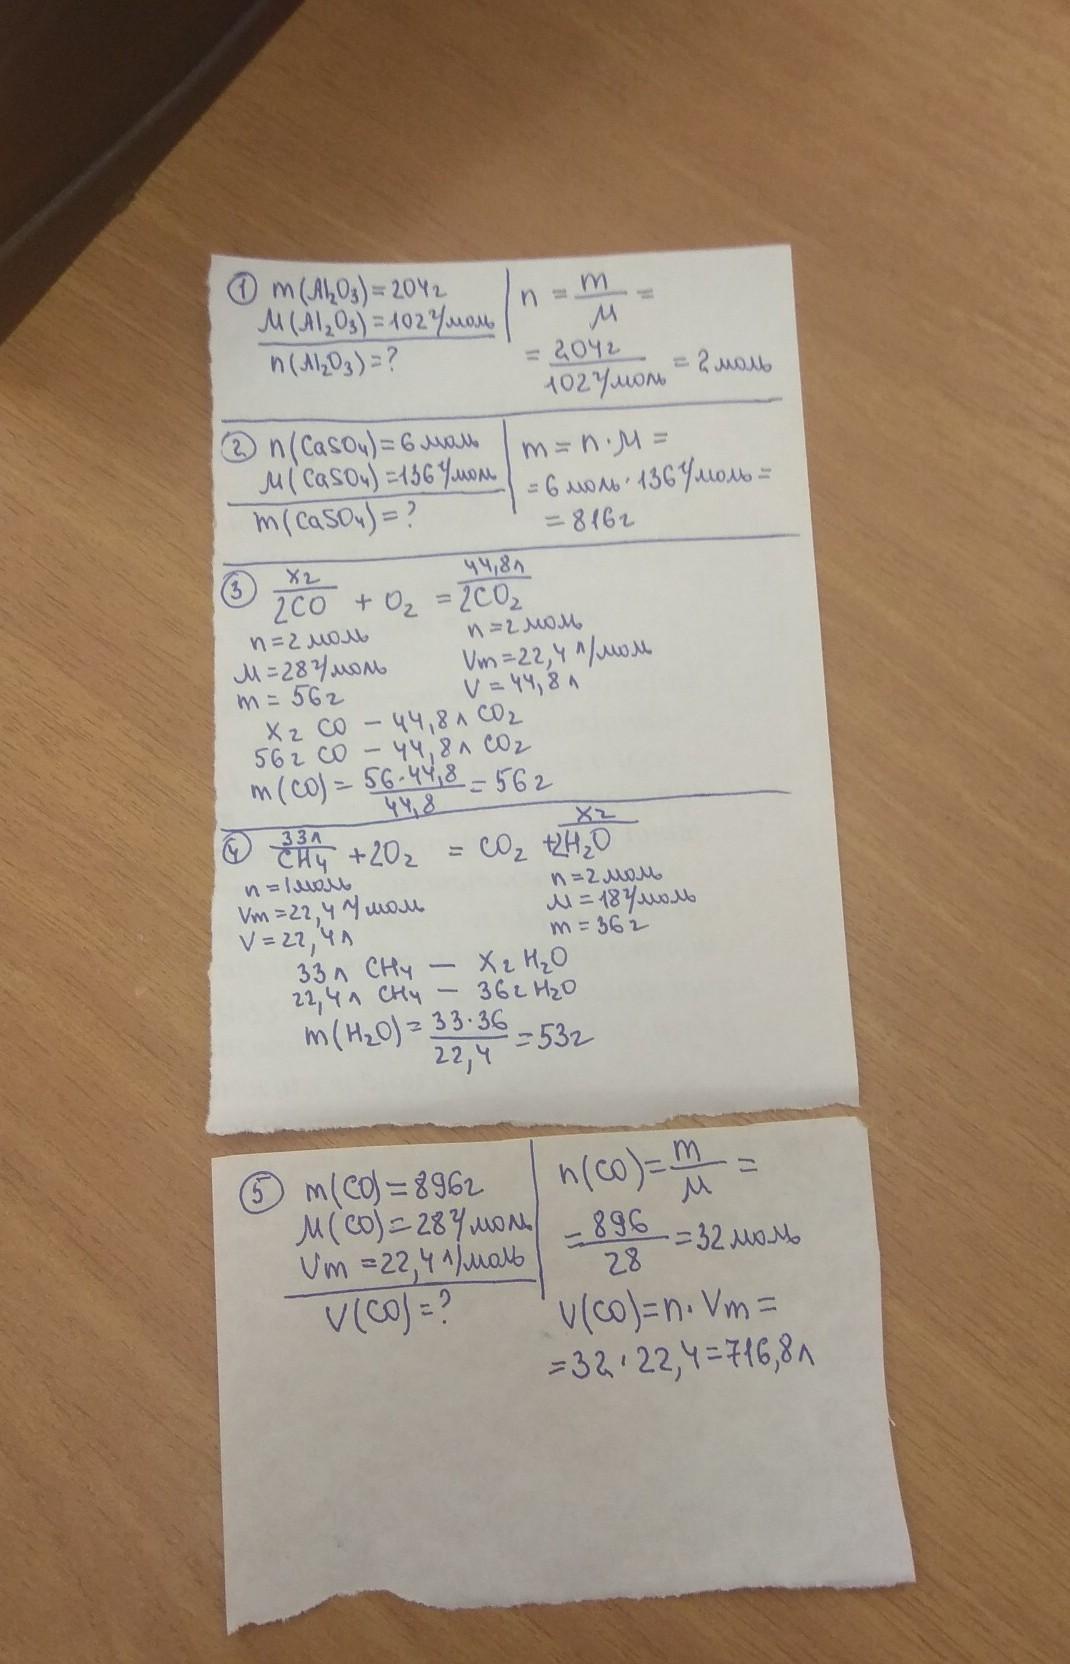 ① m(Al₂O₃)=204г
M(Al₂O₃)=102г/моль
n(Al₂O₃)=?
n = m/M =
= 204г/102г/моль = 2моль
② n(CaSO₄)=6моль
M(CaSO₄)=136г/моль
m(CaSO₄)=?
m = n·M =
=6моль·136г/моль=
=816г
③ xг 44,8л
2CO + O₂ = 2CO₂
n=2моль n=2моль
M=28г/моль Vm=22,4л/моль
m=56г V=44,8л
xг CO – 44,8л CO₂
56г CO – 44,8л CO₂
m(CO)= 56·44,8/44,8 =56г
④ 33л xг
CH₄ +2O₂ = CO₂ +2H₂O
n=1моль n=2моль
Vm=22,4л/моль M=18г/моль
V=22,4л m=36г
33л CH₄ – xг H₂O
22,4л CH₄ – 36г H₂O
m(H₂O)= 33·36/22,4 =53г
⑤ m(CO)=896г
M(CO)=28г/моль
Vm=22,4л/моль
V(CO)=?
n(CO)= m/M =
= 896/28 =32моль
V(CO)=n·Vm=
=32·22,4=716,8л